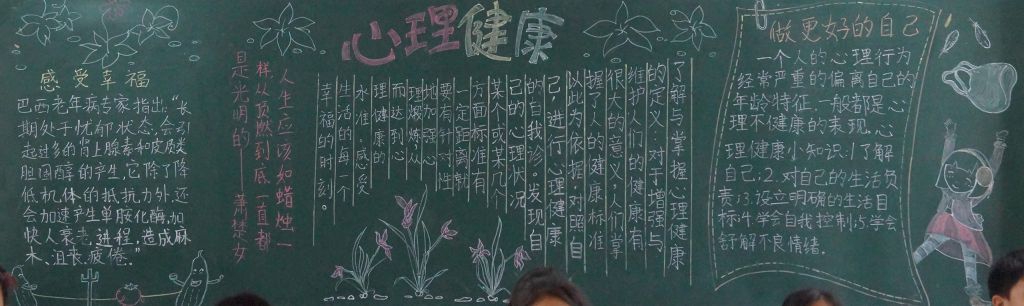 心理健康
感受幸福
巴西老年病专家指出:"长
期处于忧郁状态,会引
起过多的肾上腺素和皮质类
胆固醇的产生,它除了降
低机体的抵抗力外,还
会加速产生单胺化酶,加
快人衰老进程,造成麻
木、沮丧,疲倦."
人生应该如蜡烛一
样从顶燃到底一直都
是光明的——萧楚女
了解与掌握心理健康
的定义:对于增强与
维护人们的健康有
很大的意义,人们掌
握了人的健康标准,
以此为依据,对照自
己,进行心理健康
的自我诊。发现自
己的心理状况
某个或某几个
方面标准有
一定距离就
要有针对性
地加强心
理锻炼,从
而达到心
理健康的
水准,感受
生活的每一个
幸福的时刻。
做更好的自己
一个人的心理行为
经常严重的偏离自己的
年龄特征,一般都是心
理不健康的表现.心
理健康小知识:1了解
自己:2.对自己的生活负
责;3.设立明确的生活目
标;4.学会自我控制;5.学会
舒解不良情绪.